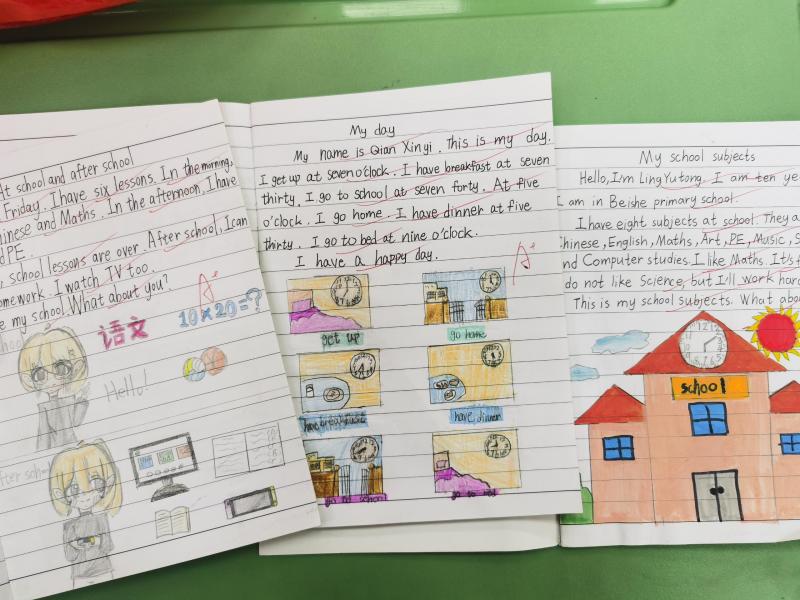 At school and after school
Friday. I have six lessons. In the morning,
Chinese and Maths. In the afternoon, I have
PE.
school lessons are over. After school, I can
homework. I watch TV too.
my school. What about you?
A+
语文
10×20=?
Hello!
after school
My day
My name is Qian Xinyi. This is my day.
I get up at seven o'clock. I have breakfast at seven
thirty. I go to school at seven forty. At five
o'clock. I go home. I have dinner at five
thirty. I go to bed at nine o'clock.
I have a happy day.
A+
get up
go home
have breakfast
have dinner
go to school
go to bed
My school subjects
Hello, I'm Ling Yutong. I am ten
I am in Beishe primary school.
I have eight subjects at school. They
Chinese, English, Maths, Art, PE, Music,
and Computer studies. I like Maths. It's
do not like Science, but I'll work hard
This is my school subjects. What
school